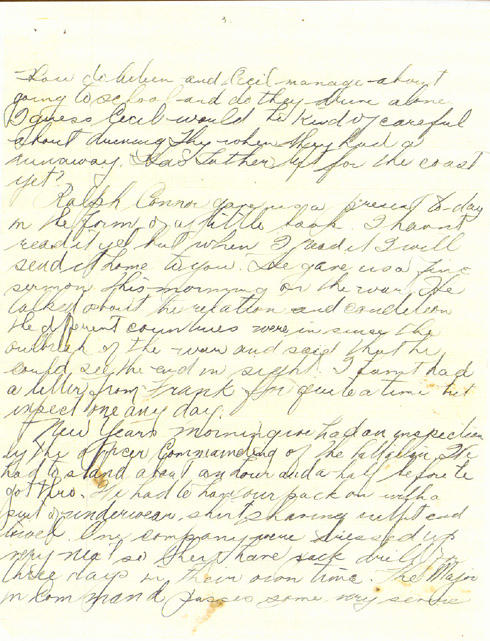 How do Helen and Cecil manage about
going to school and do they drive alone
I guess Cecil would be kind of careful
about driving They when they had a
runaway. Has Father left for the coast
yet?
Ralph Connor gave us a present to-day
in the form of a little book. I havnt
read it yet but when I read it I will
send it home to you. He gave us a fine
sermon this morning on the war. He
talked about the relation and condition
the different countries were in since the
outbreak of the war and said that he
could see the end in sight. I havnt had
a letter from Frank for quite a time but
expect one any day.
New Years morning we had an inspection
by the officer Commanding of the We
had to stand about an hour and a half before he
got thro. We had to have our pack on with a
suit of underwear, shirt, shaving outfit and
towel. One company were dressed up
very neat so they have pack drill for
three days in their own time. The Major
in Command passes some very severe